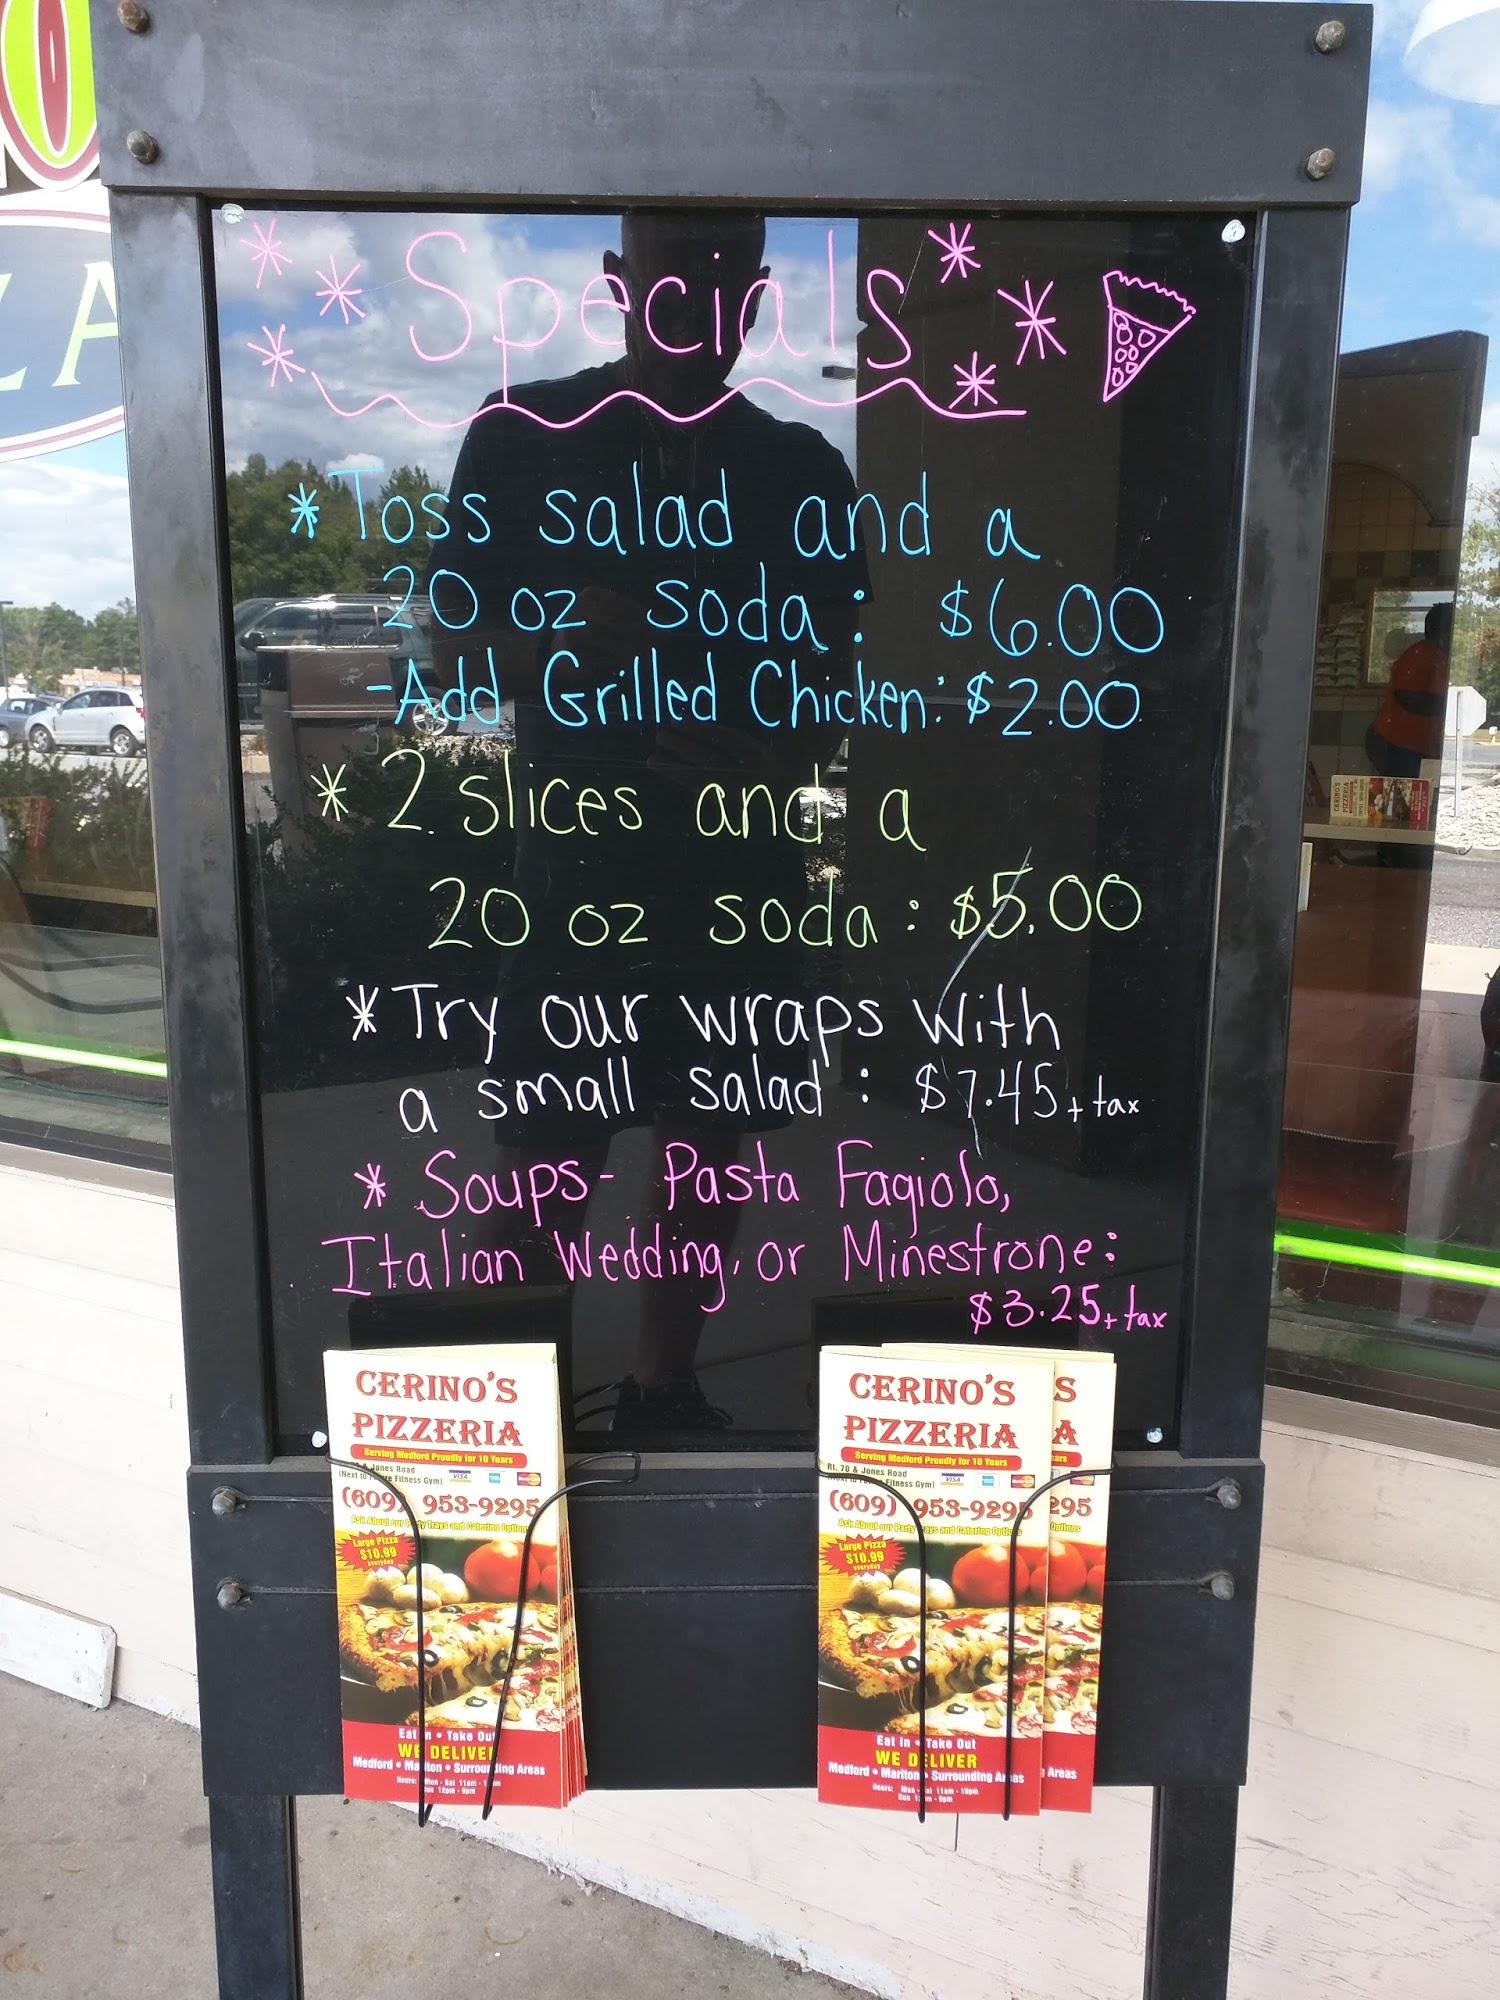 Specials
*Toss salad and a
20 oz soda: $6.00
-Add Grilled Chicken: $2.00
* 2 slices and a
20 oz soda: $5.00
*Try our wraps with
a small salad: $7.45 + tax
* Soups- Pasta Fagiolo,
Italian Wedding, or Minestrone:
$3.25 + tax
CERINO'S
PIZZERIA
Serving Medford Proudly for 10 Years
& Jones Road
(Next to Fitness Gym)
VISA
(609) 953-9295
Ask About our Party Trays and Catering Options
Large Pizza
$10.99
everyday
Eat In • Take Out
WE DELIVER
Medford • Marlton • Surrounding Areas
CERINO'S
PIZZERIA
Serving Medford Proudly for 10 Years
Rt. 70 & Jones Road
(Next to Fitness Gym)
VISA
(609) 953-9295
Ask About our Party Trays and Catering Options
Large Pizza
$10.99
everyday
Eat In • Take Out
WE DELIVER
Medford • Marlton • Surrounding Areas
Hours: Mon - Sat 11am - 10pm
Sun 12pm - 9pm
S
A
ears
295
Options
g Areas
ZA
CERINO'S
PIZZERIA